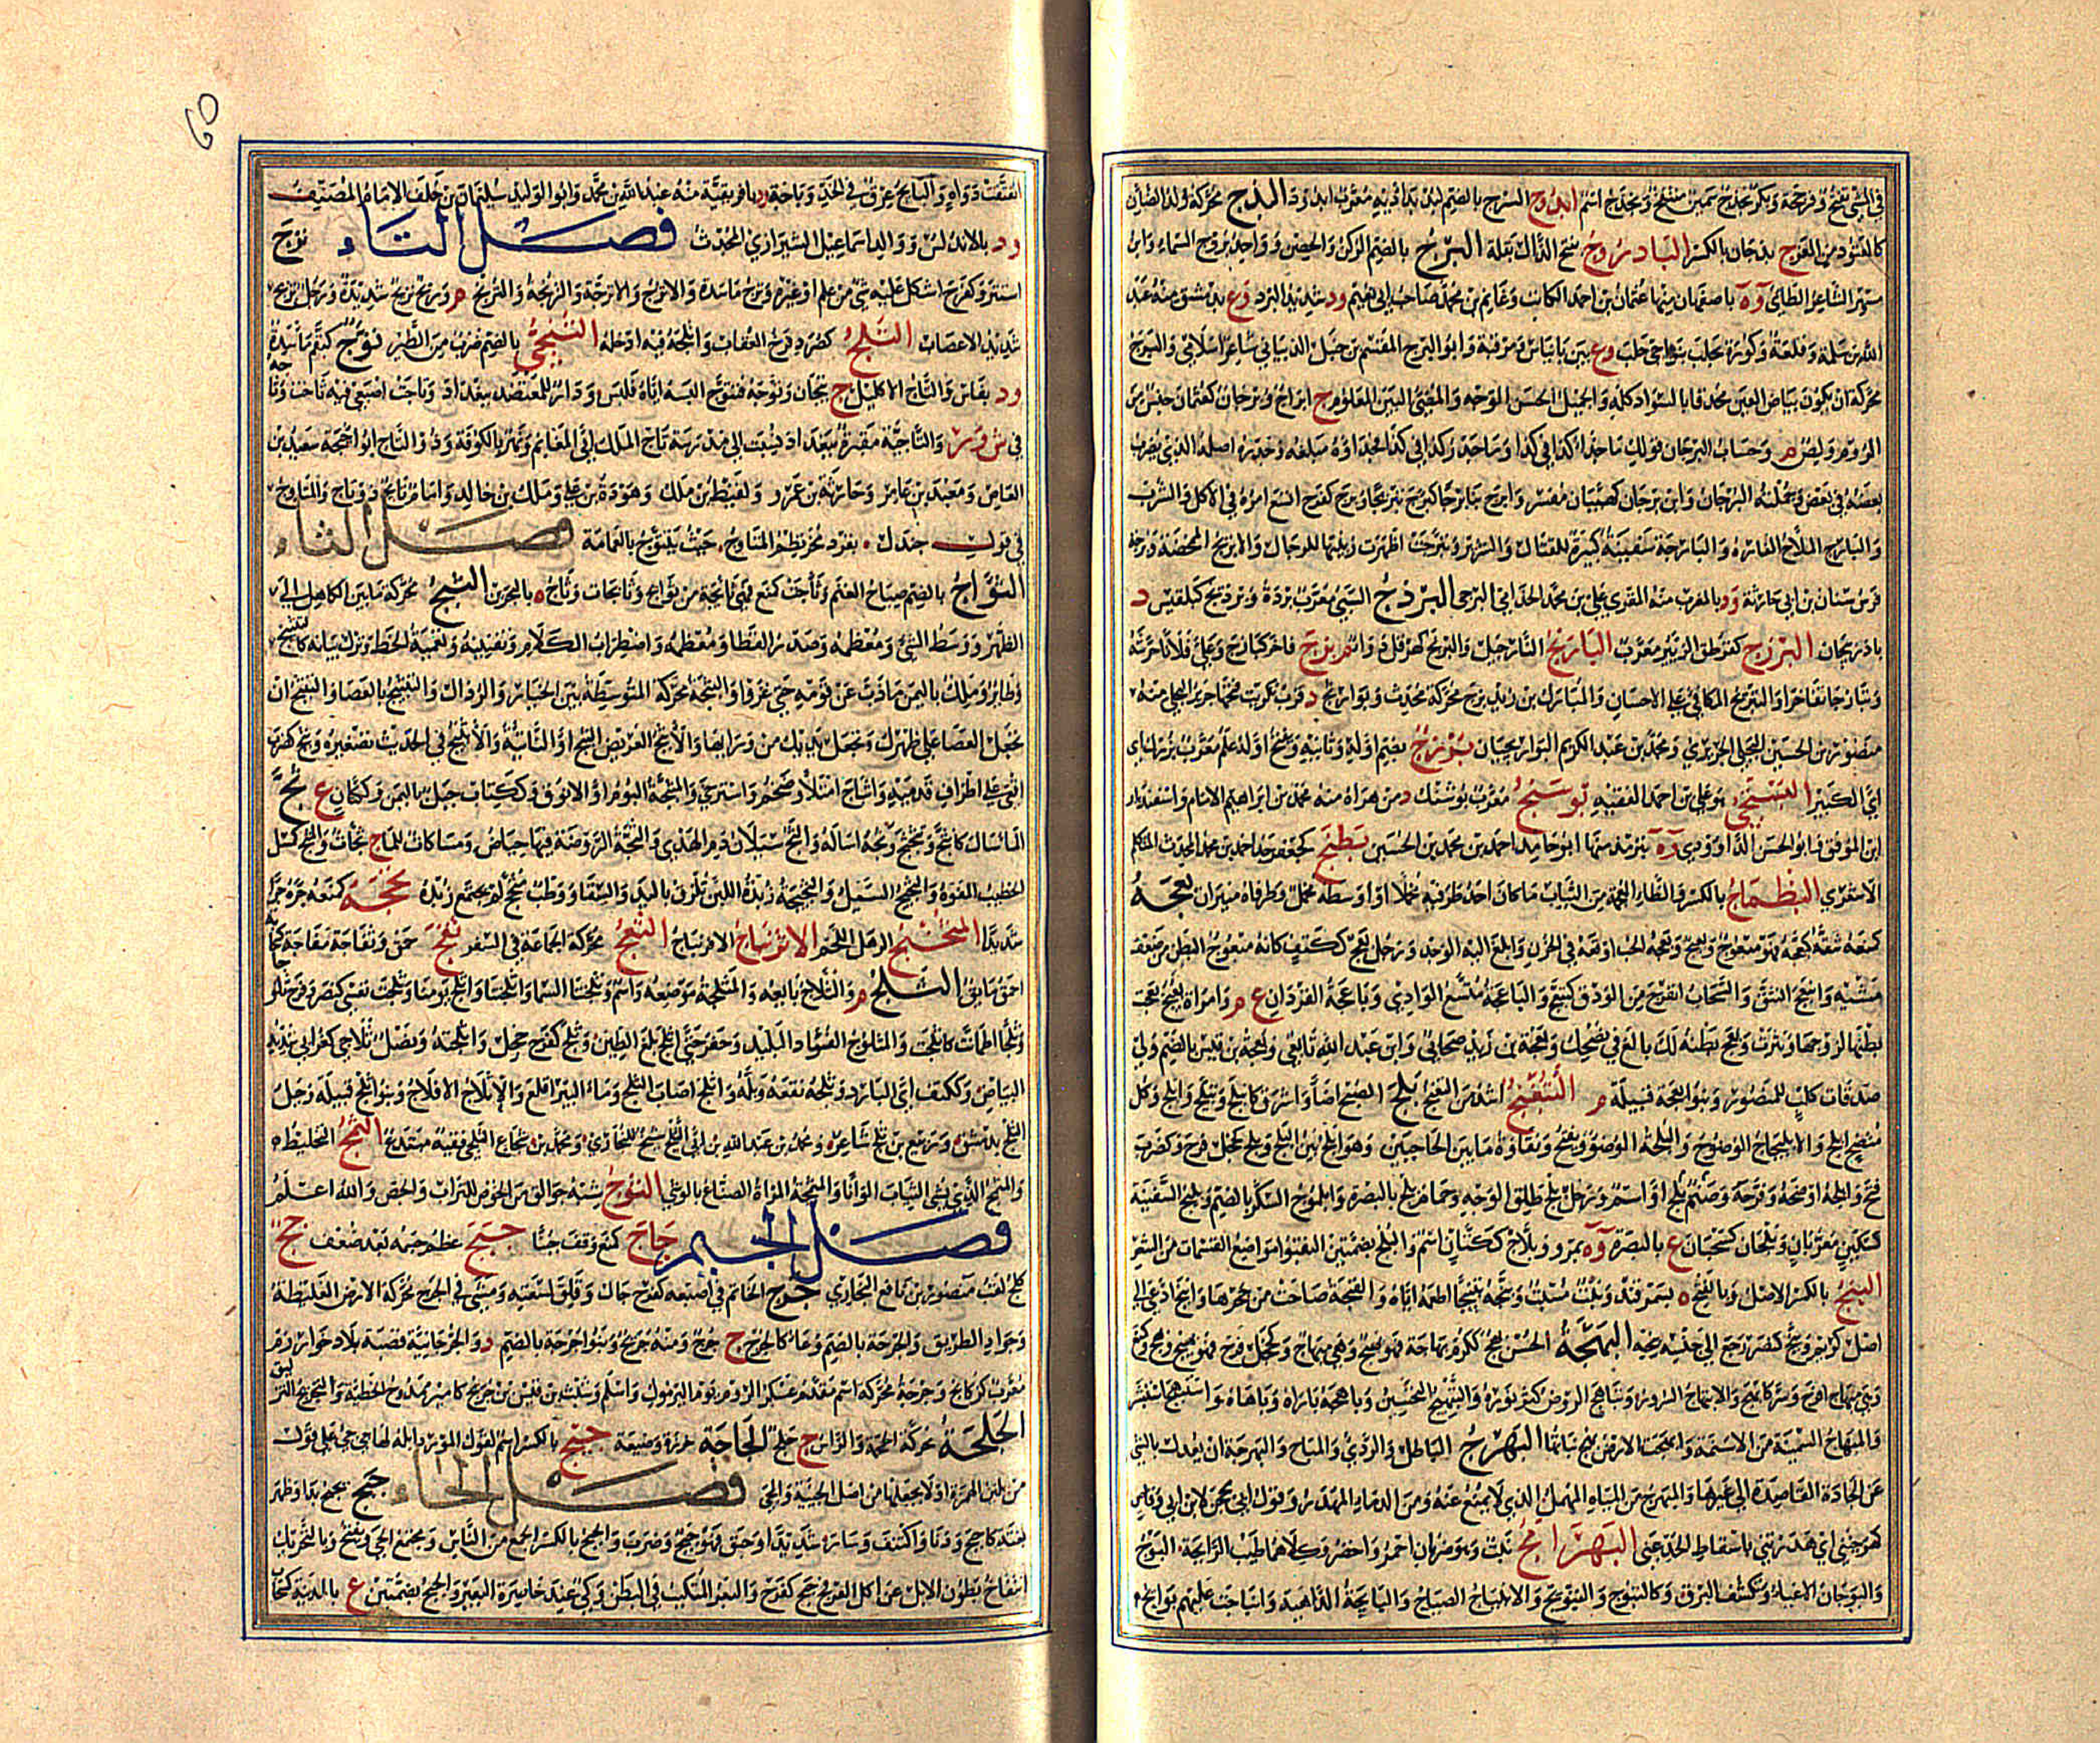 في المشي بفتح وفرجحة وبكر بحدج بحمين مسلم وبحدج اسم ابدوج السرج بالضم لبد بداديه معرب ابد ود البذج محركة ولد الضأن
كالعتود من المعز ج بذجان بالكسر الباذروج بفتح الذال بقلة البرج بالضم الركن والحصن وواحد بروج السماء وابن
مسهر الشاعر الطائي و ة باصفهان منها عثمان بن احمد الكاتب وغانم بن محمد صاحب ابي نعيم ود شديد البرد وع بدمشق منه عبد
الله بن سلمة وقلعة وكورة بحلب بنواحي حلب وع بين بانياس ومرقبة وابو البرج القسم بن جبل الذبياني شاعر اسلامي والبرج
محركة ان يكون بياض العين محدقا بالسواد كله والجميل الحسن الوجه والمضيء البين المعلوم ج ابراج وبرجان كعثمان جنس من
الروم ولص م وحساب البرجان قولك ما جذاء كذا في كذا وما جذر كذا في كذا فجذاؤه مبلغه وجذره اصله الذي يضرب
بعضه في بعض وجملته البرجان وابن برجان كهيبان مفسر وابرج بنا برجا كبرج تبريجا وبرج كفرح اتسع امره في الاكل والشرب
والبارج الملاح الفاره والبارجة سفينة كبيرة للقتال والشرير وتبرجت اظهرت زينتها للرجال والابريج الممخضة وبرجة
فرس سنان بن ابي حارثة ود بالمغرب منه المقرئ علي بن محمد الجذامي البرجي البردج السبي معرب برده وبرديج كبلقيس د
باذربيجان البرزج كقرطق الزئبر معرب البارنج النارجيل والبرنج كهرقل دواء م بزج فاخر كبازج وعلى فلانا حرشه
وتبازجا تفاخرا والتبزيج المكافئ على الاحسان والمبارك بن زيد بزج محركة محدث وبوازيج د قرب تكريت فتحها جرير البجلي منه
منصور بن الحسن البجلي الجريري ومحمد بن عبد الكريم البوازيجيان بزرج بضم اوله وثانيه وفتح اوله علم معرب بزرك اي
اي الكبير البستجي هو علي بن احمد الفقيه بوسنج معرب بوشنك د من هراة منه محمد بن ابراهيم الامام واسفنديار
ابن الموفق وابو الحسن الداوودي و ة بترمذ منها ابو حامد احمد بن محمد بن الحسين بطنج كجعفر جد احمد بن محمد المحدث المتكلم
الاشعري البظماج بالكسر والظاء المعجمة من الثياب ما كان احد طرفيه مخملا او اوسطه مخمل وطرفاه منيران بعجه
كمنعه شقه كبعجه فهو مبعوج وبعيج وبعجه الحب اوقعه في الحزن وابلغ اليه الوجد ورجل بعج ككتف كانه مبعوج البطن من ضعف
مشيه وانبعج انشق والسحاب انفرج من الودق كتبعج والباعجة متسع الوادي وباعجة القردان ع م وامراة بعيج بعجت
بطنها لزوجها ونثرت وبعج بطنه لك بالغ في نصحك وبعجة بن زيد صحابي وابن عبد الله تابعي وبعجة بن قيس بالضم ولي
صدقات كلب للمنصور وبنو بعجة قبيلة م التبعنج اشد من التعنج بلج الصبح اضاء واشرق كانبلج وتبلج وابلج وكل
متضح ابلج والابليجاج الوضوح والبلجة الوضوء وبفتح ونقاوة ما بين الحاجبين وهو ابلج بين البلج وبلج كخجل فرح وكضرب
فتح وابلجه اوضحه وفرجه وضمه بلج او اسم ورجل بلج طلق الوجه وحمام بلج بالبصرة وابلوج السكر بالضم وبليج السفينة
كسكين معربان وبلجان كسحبان ع بالبصرة و ة بمرو وبلاج ككتان اسم والبلج بضمتين النقيو مواضع القسمات من الشعر
البنج بالكسر الاصل وبالفتح ة بسمرقند ونبت مسبت وبنجه تبنيجا اطعمه اياه والقبجة صاحت من جحرها وانبج ادعى الى
اصل كريم وبنج كنصر رجع الى حنثه بنجه البهجة الحسن بهج ككرم بهاجة فهو بهيج وهي مبهاج وكخجل فرح فهو بهيج وبهج وكمنع
وهي مبهاج افرح وسر كابهج والابتهاج السرور وتباهج الروض كثر نوره والتبهيج التحسين وباهجه باراه وباهاه واستبهج استبشر
والمبهاج السمينة من الاسنمة وابهجت الارض بهج نباتها البهرج الباطل والرديء والمباح والبهرجة ان يعدل بالشيء
عن الجادة القاصدة الى غيرها والمبهرج من المياه المهمل الذي لا يمنع عنه ومن الدماء المهدر وقول ابي محجن لابن ابي وقاص
بهرجتني اي هدرتني باسقاط الحد عني البهرامج نبت وهو ضربان احمر واخضر وكلاهما طيب الرائحة البوج
والبوجان الاعياء وتكشف البرق وكالتبوج والتبويج والابتياج الصياح والبائجة الداهية وانباجت عليهم بوائج
انفتقت دواه والبائج عرق في الجلد وباجة د بافريقية منه عبد الله بن محمد وابو الوليد سليمان بن خلف الامام المصنف
ود بالاندلس ووالد اسماعيل الشيرازي المحدث فصل التاء ترج
استتر وكفرح اشكل عليه شيء من علم او غيره وترج ماسدة والاترج والاترجة والترنجة والترنج م وريح تريج شديدة ورجل تريج
شديد الاعصاب التلج كصرد فرخ العقاب واتلجه فيه ادخله التبجي بالضم ضرب من الطير توج كبقم ماسدة
ود بفارس والتاج الاكليل ج تيجان وتوجه فتتوج البسه اياه فلبس ودار للمعتضد ببغداد وتاجت اصبعي فيه تاخت وتا
في ش و ر والتاجية مقبرة ببغداد نسبت الى مدرسة تاج الملك ابي الغنائم ونهر بالكوفة وذو التاج ابو احيحة سعيد بن
العاص ومعبد بن عامر وحارثة بن عمرو ولقيط بن ملك وهوذة بن علي وملك بن خالد وامام تائج ذو تاج والمتاوج
في قول جندل بفرد مخرنطم المتاوج حيث يتتوج بالعمامة فصل الثاء
الثؤاج بالضم صياح الغنم وثأجت كمنع فهي ثائجة من ثوائج وثائجات وثأج ة بالبحرين الثبج محركة ما بين الكاهل الى
الظهر ووسط الشيء ومعظمه وصدر القطا ومعظمه واضطراب الكلام وتفنينه وتعمية الخط وترك بيانه كالتثبيج
وطائر وملك باليمن ما ذب عن قومه حتى غزوا والثبجة محركة المتوسطة بين الخيار والرذال والتثبيج بالعصا والتثبج ان
تجعل العصا على ظهرك وتجعل يديك من ورائها والاثبج العريض الثبج او الناتئه والاثيبج في الحديث تصغيره وثبج كضرب
اقعى على اطراف قدميه واثباج امتلأ وضخم واسترخى والمثبجة البومة او الانوق وككتاب جبل باليمن وككتان ع ثج
الماء سال كانثج وتثجثج وثجه اساله والثج سيلان دم الهدي والثجة الروضة فيها حياض ومساكات للماء ج ثجات والمثج كمسل
الخطيب المفوه والثجيج السيل والثجيجة زبدة اللبن تلزق باليد والسقاء ووطب مثج لم يجتمع زبده ثحجه كمنعه جره جرا
شديدا المثخبج الرهل اللحم الاثرنباج الافرنباج الثعج محركة الجماعة في السفر ثفج حمق وثفاجة نفاجة
احمق مايق الثلج م والثلاج بائعه والمثلجة موضعه واسم وثلجتنا السماء واثلجتنا واثلج يومنا وثلجت نفسي كنصر وفرح ثلوجا
وثلجا اطمانت كاثلجت والمثلوج الفؤاد البليد وحفر حتى اثلج بلغ الطين وثلج كفرح خجل واثلجته ونصل ثلاجي كغرابي شديد
البياض وككتف اي البارد وثلجه نقعه وبله واثلج اصاب الثلج وماء البير اقلع والاثلاج الافلاج وبنو اثلج قبيلة وجبل
الثلج بدمشق وربيع بن ثلج شاعر ومحمد بن عبد الله بن ابي الثلج شيخ للبخاري ومحمد بن شجاع الثلجي فقيه مبتدع الثمج التخليط
والمثمج الذي يشي الثياب الوانا والمثمجة المراة الصناع بالوشي الثوج شبه جوالق من الخوص للتراب والجص والله اعلم
فصل الجيم جاج كمنع وقف جبنا جبج عظم جسمه بعد ضعف جج
كلح لقب منصور بن نافع البخاري جرج الخاتم في اصبعه كفرح جال وقلق لسعته ومشى في الجرج محركة الارض الغليظة
وجواد الطريق والجرجة بالضم وعاء كالخرج ج جرج ومنه جريج وبنو جرجة بالضم د والجرجانية قصبة بلاد خوارزم
معرب كركانج وجرجة محركة اسم مقدم عسكر الروم يوم اليرموك واسلم وشيث بن قيس بن جريج كامير ممدوح الحطيئة والتجريج التزليق
الجلجة محركة الجمجمة والراس ج جلج الجاجة خرزة وضيعة جنج بالكسر اسم لقول المورد ابله لها جي جي على قول
من يلين الهمزة او لا يجعلها من اصل الجيئة والجيء فصل الحاء حبج يحبج بدا وظهر
بغتة كاحبج ودنا واكتنف وسار شديدا وحبق فهو حبج وضرب والحبج بالكسر الجمع من الناس ومجتمع الحي وبفتح وبالتحريك
انتفاخ بطون الابل عن اكل العرفج حبج كفرح والبعر المتكبب في البطن وكي عند خاصرة البعير والحبج بضمتين ع بالمدينة كحبا